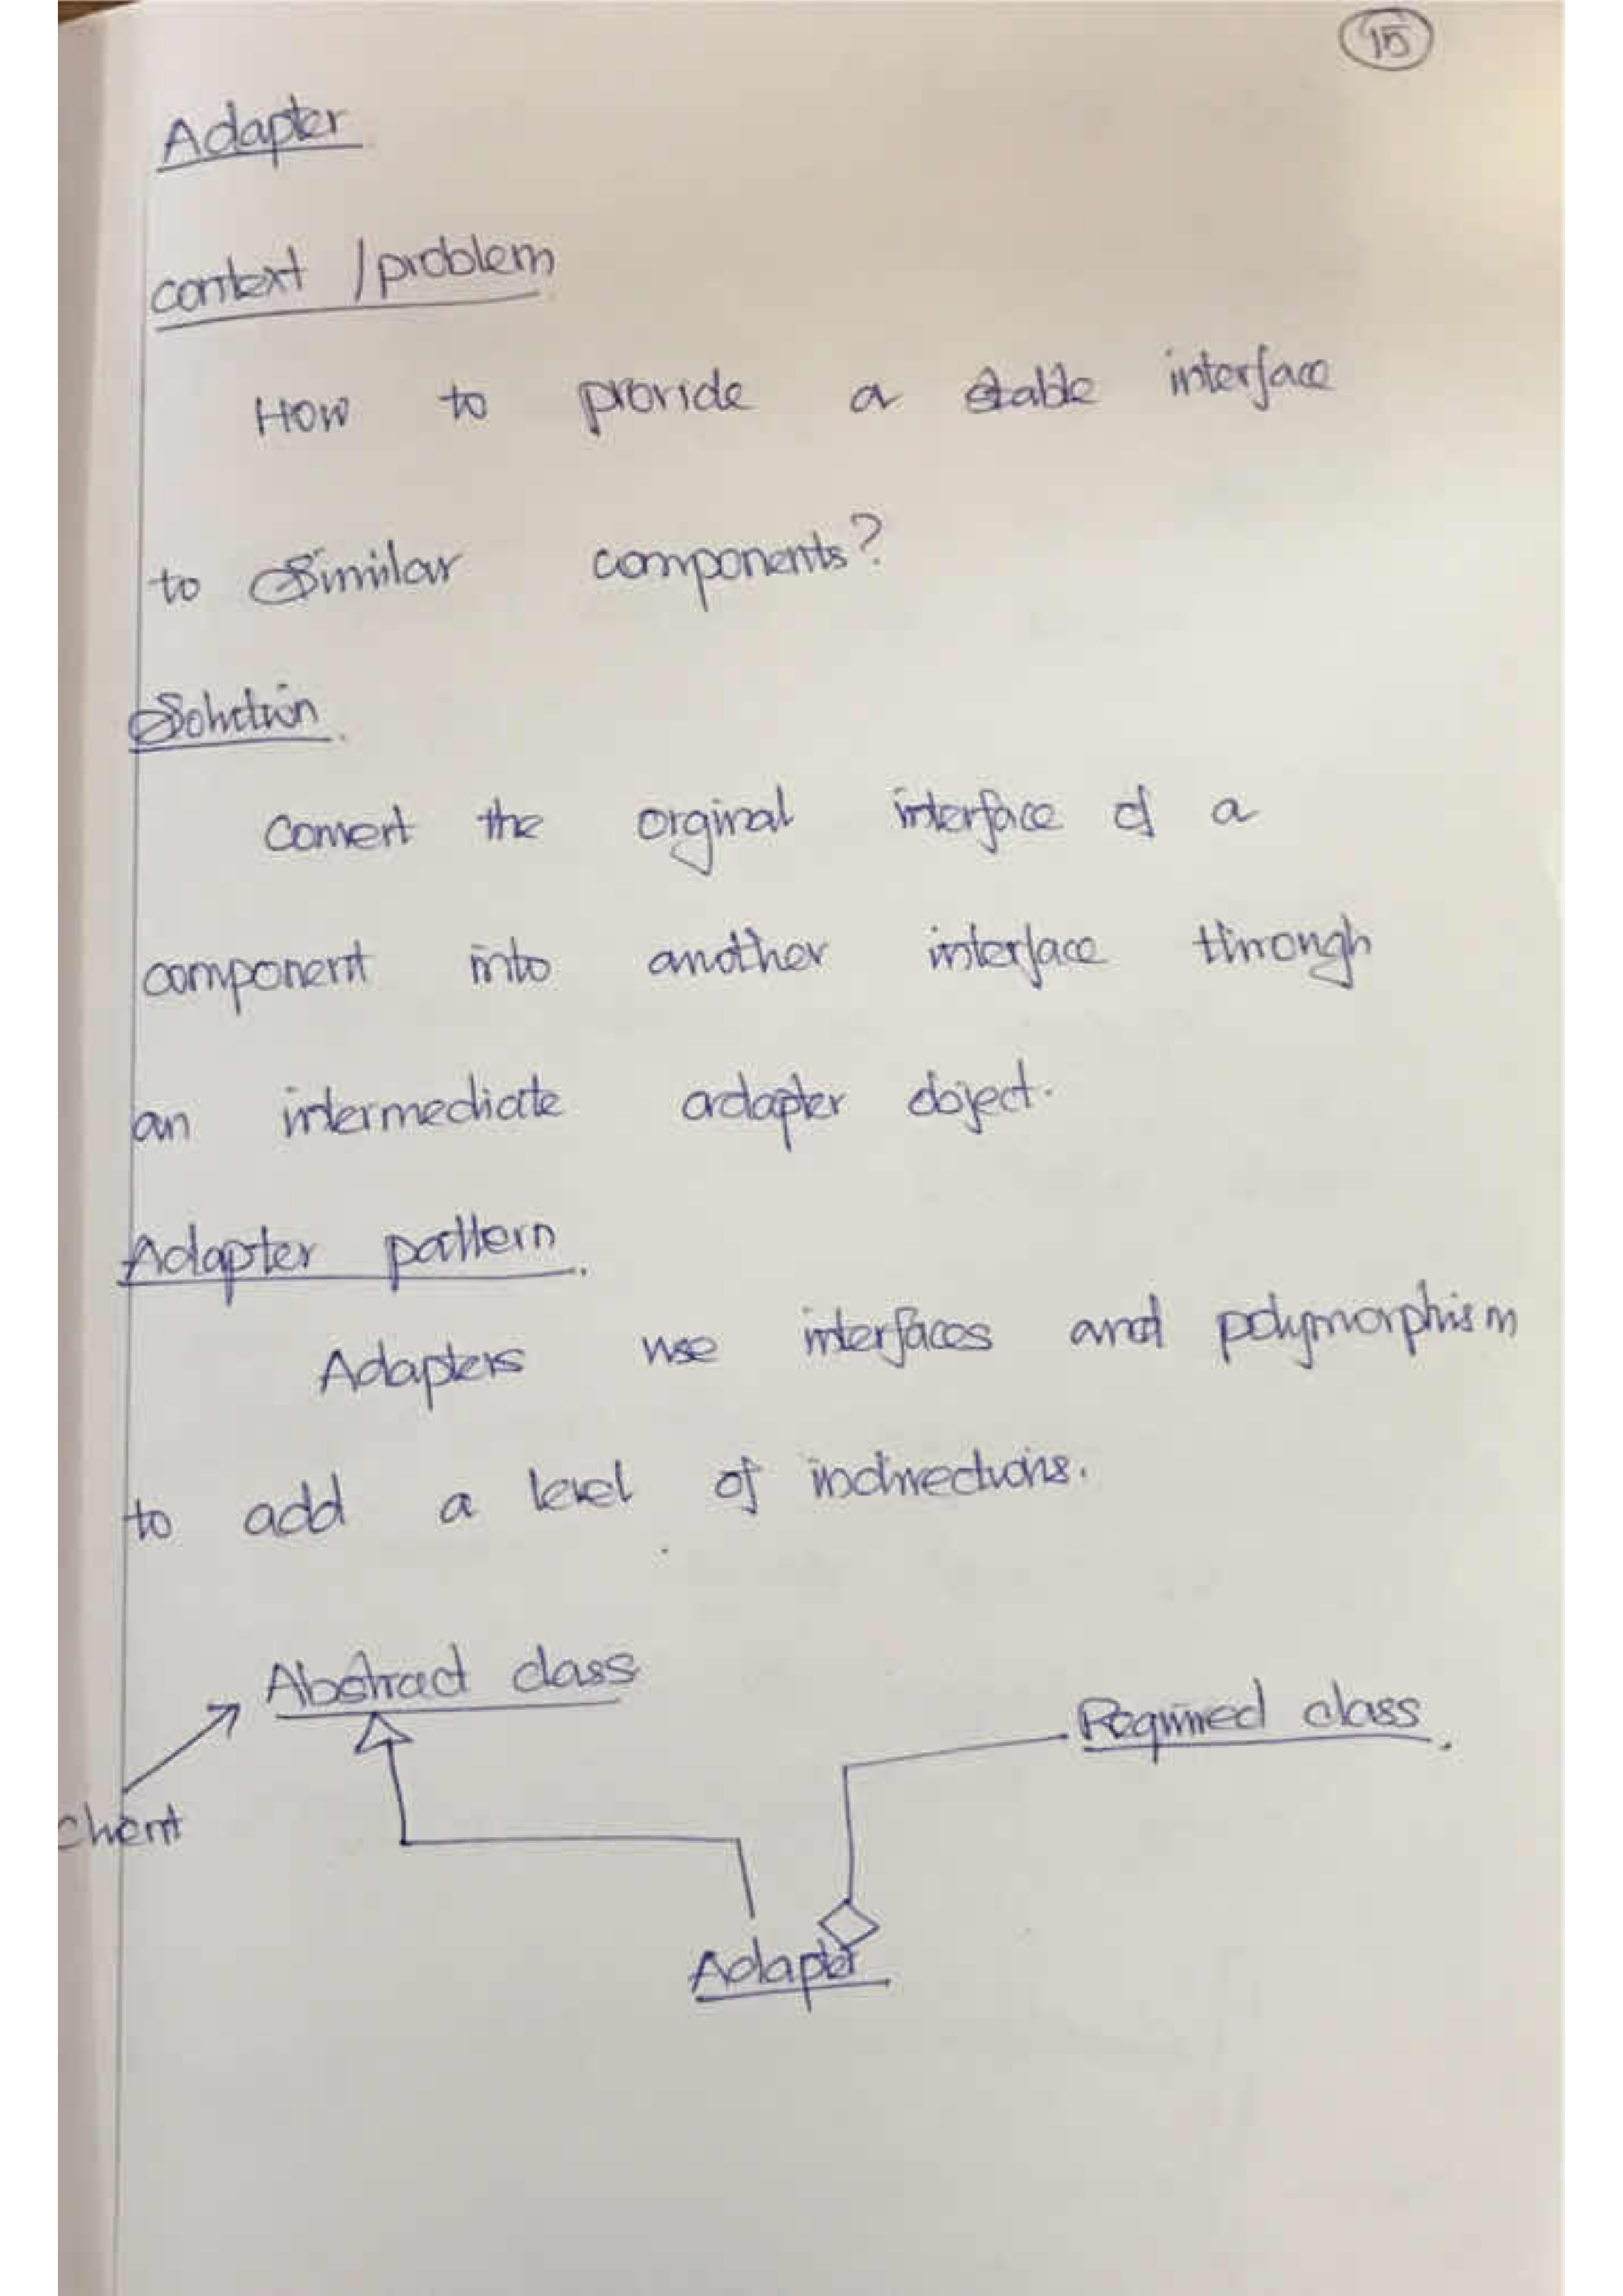 15
Adapter
context / problem
How to provide a stable interface
to Similar components?
Solution
Convert the orginal interface of a
component into another interface through
an intermediate adapter object.
Adapter pattern
Adapters use interfaces and polymorphism
to add a level of indirections.
Abstract class
Required class
client
Adapter